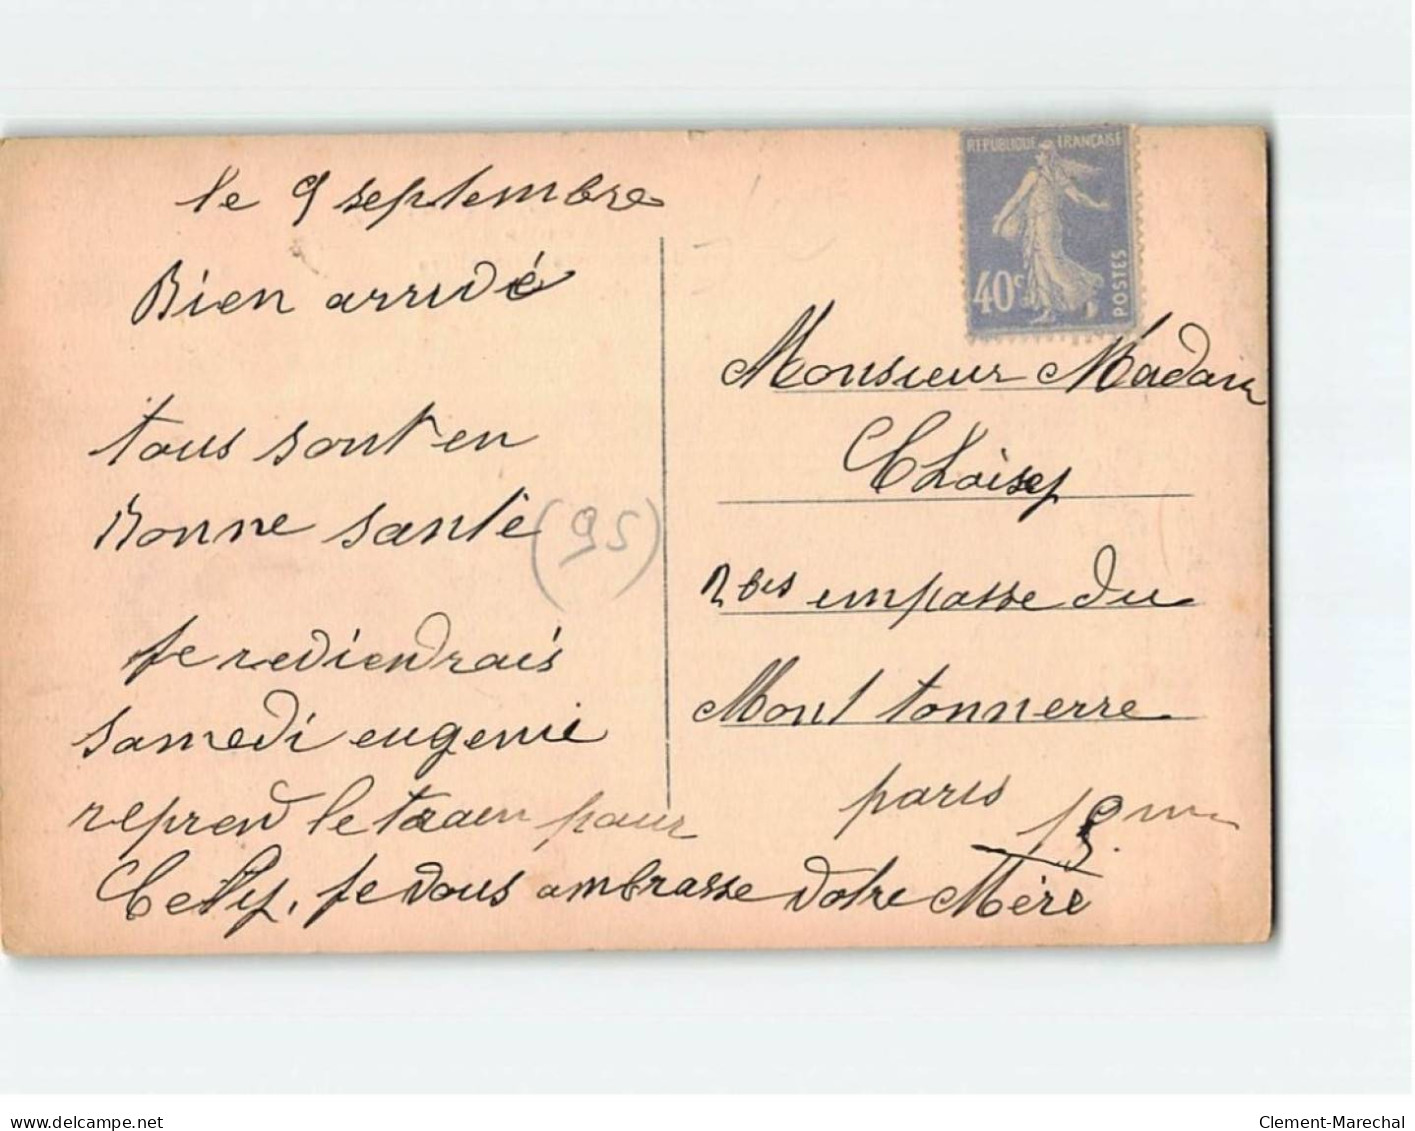 le 9 septembre
Bien arrivé
tous sont en
Bonne santé
(95)
Je reviendrais
samedi eugenie
reprend le traain pour
Je vous ambrasse votre Mére
RÉPUBLIQUE FRANÇAISE
40c
POSTES
Monsieur Madam
Choisy
2 bis empasse du
Mont tonnerre
paris 15 me
delcampe.net
Clement-Marechal